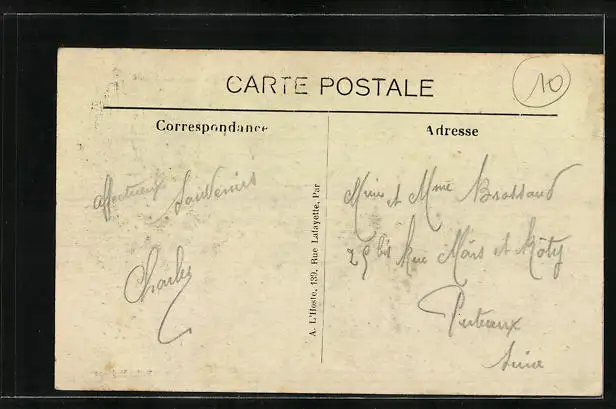 CARTE POSTALE
10
Correspondance
Adresse
Affectueux Souvenirs
Charles
A. L'Hoste, 139, Rue Lafayette, Par
et Mme Brossaud
25 bis Rue Mars et Roty
Puteaux
Seine